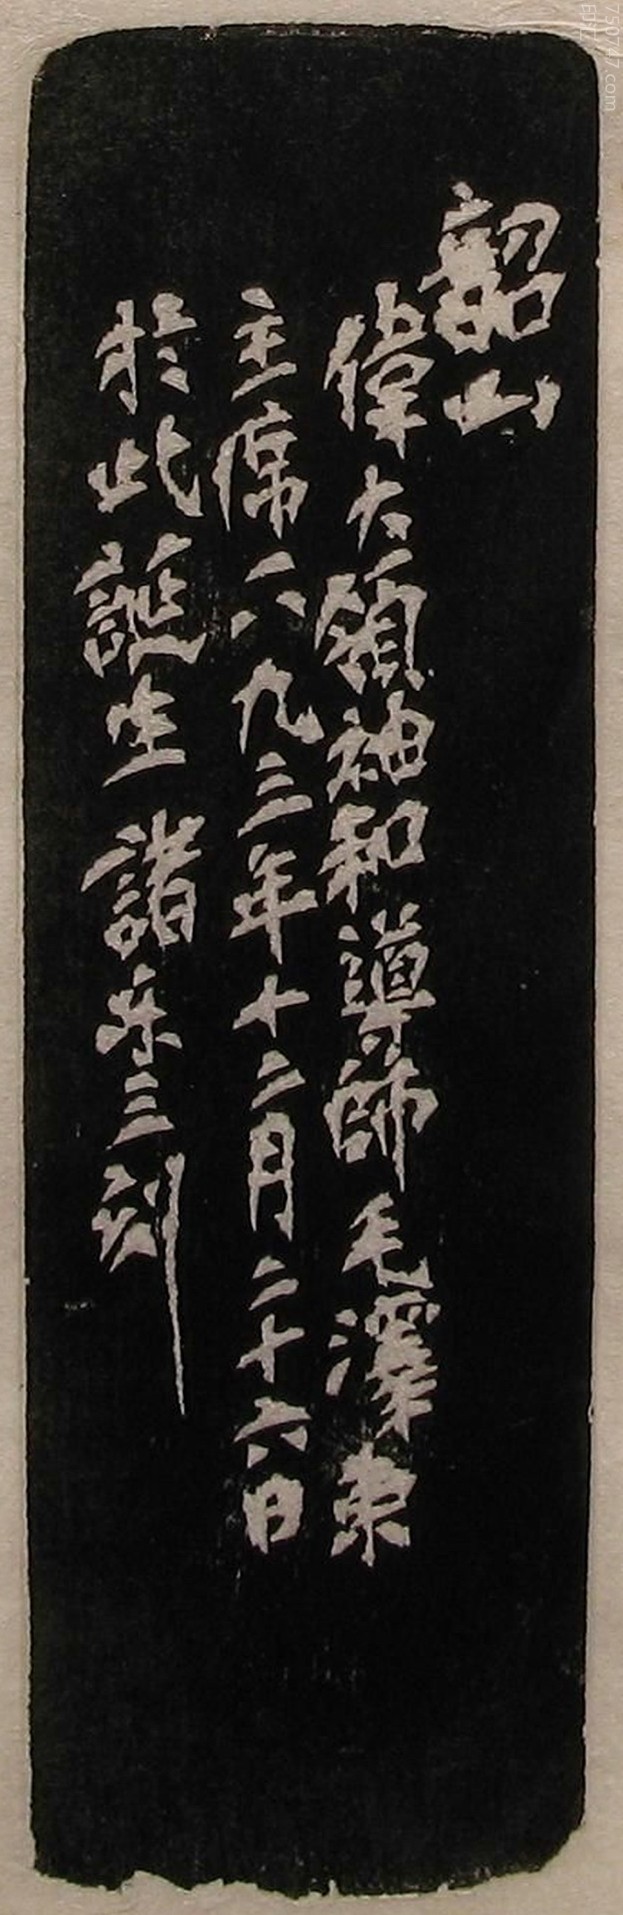 韶山
偉大領袖和導師毛澤東
主席一八九三年十二月二十六日
於此誕生 諸乐三刻